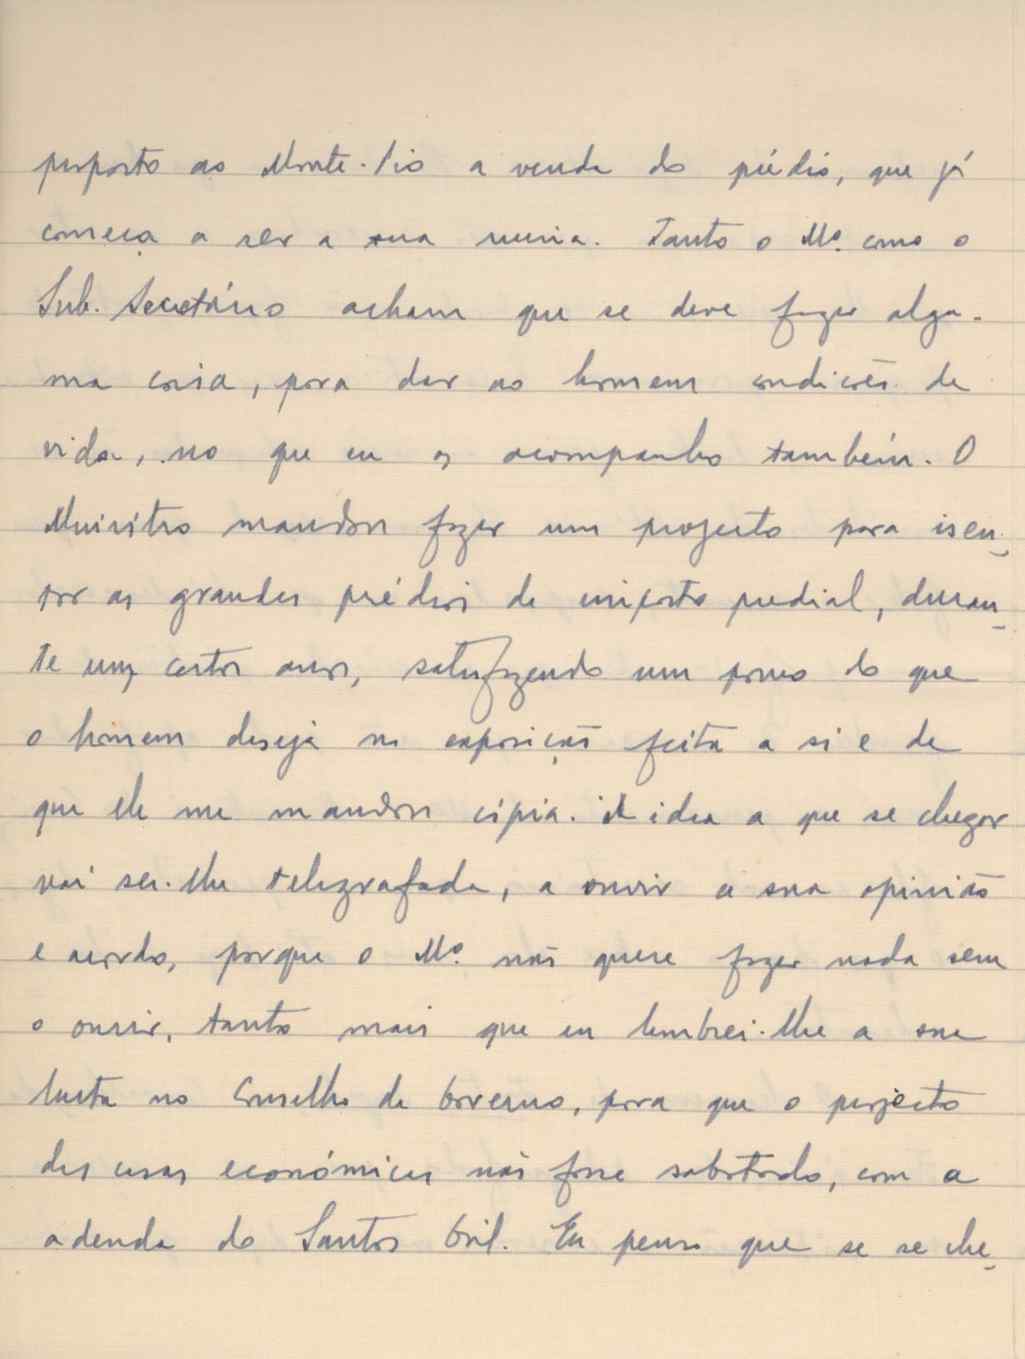 proposto ao Monte-Pio a venda do prédio, que já
começa a ser a sua ruina. Tanto o Mº. como o
Sub-Secretário acham que se deve fazer algu-
ma coisa, para dar ao homem condições de
vida, no que eu os acompanho também. O
Ministro mandou fazer um projecto para isen-
tar os grandes prédios de imposto predial, duran-
te uns certos anos, satisfazendo um pouco do que
o homem deseja na exposição feita a si e de
que ele me mandou cópia. A idea a que se chegar
vai ser-lhe telegrafada, a ouvir a sua opinião
e acordo, porque o Mº. não quere fazer nada sem
o ouvir, tanto mais que eu lembrei-lhe a sua
luta no Conselho de Governo, para que o projecto
das casas económicas não fosse sabotado, com a
adenda do Santos Gil. Eu penso que se se che-